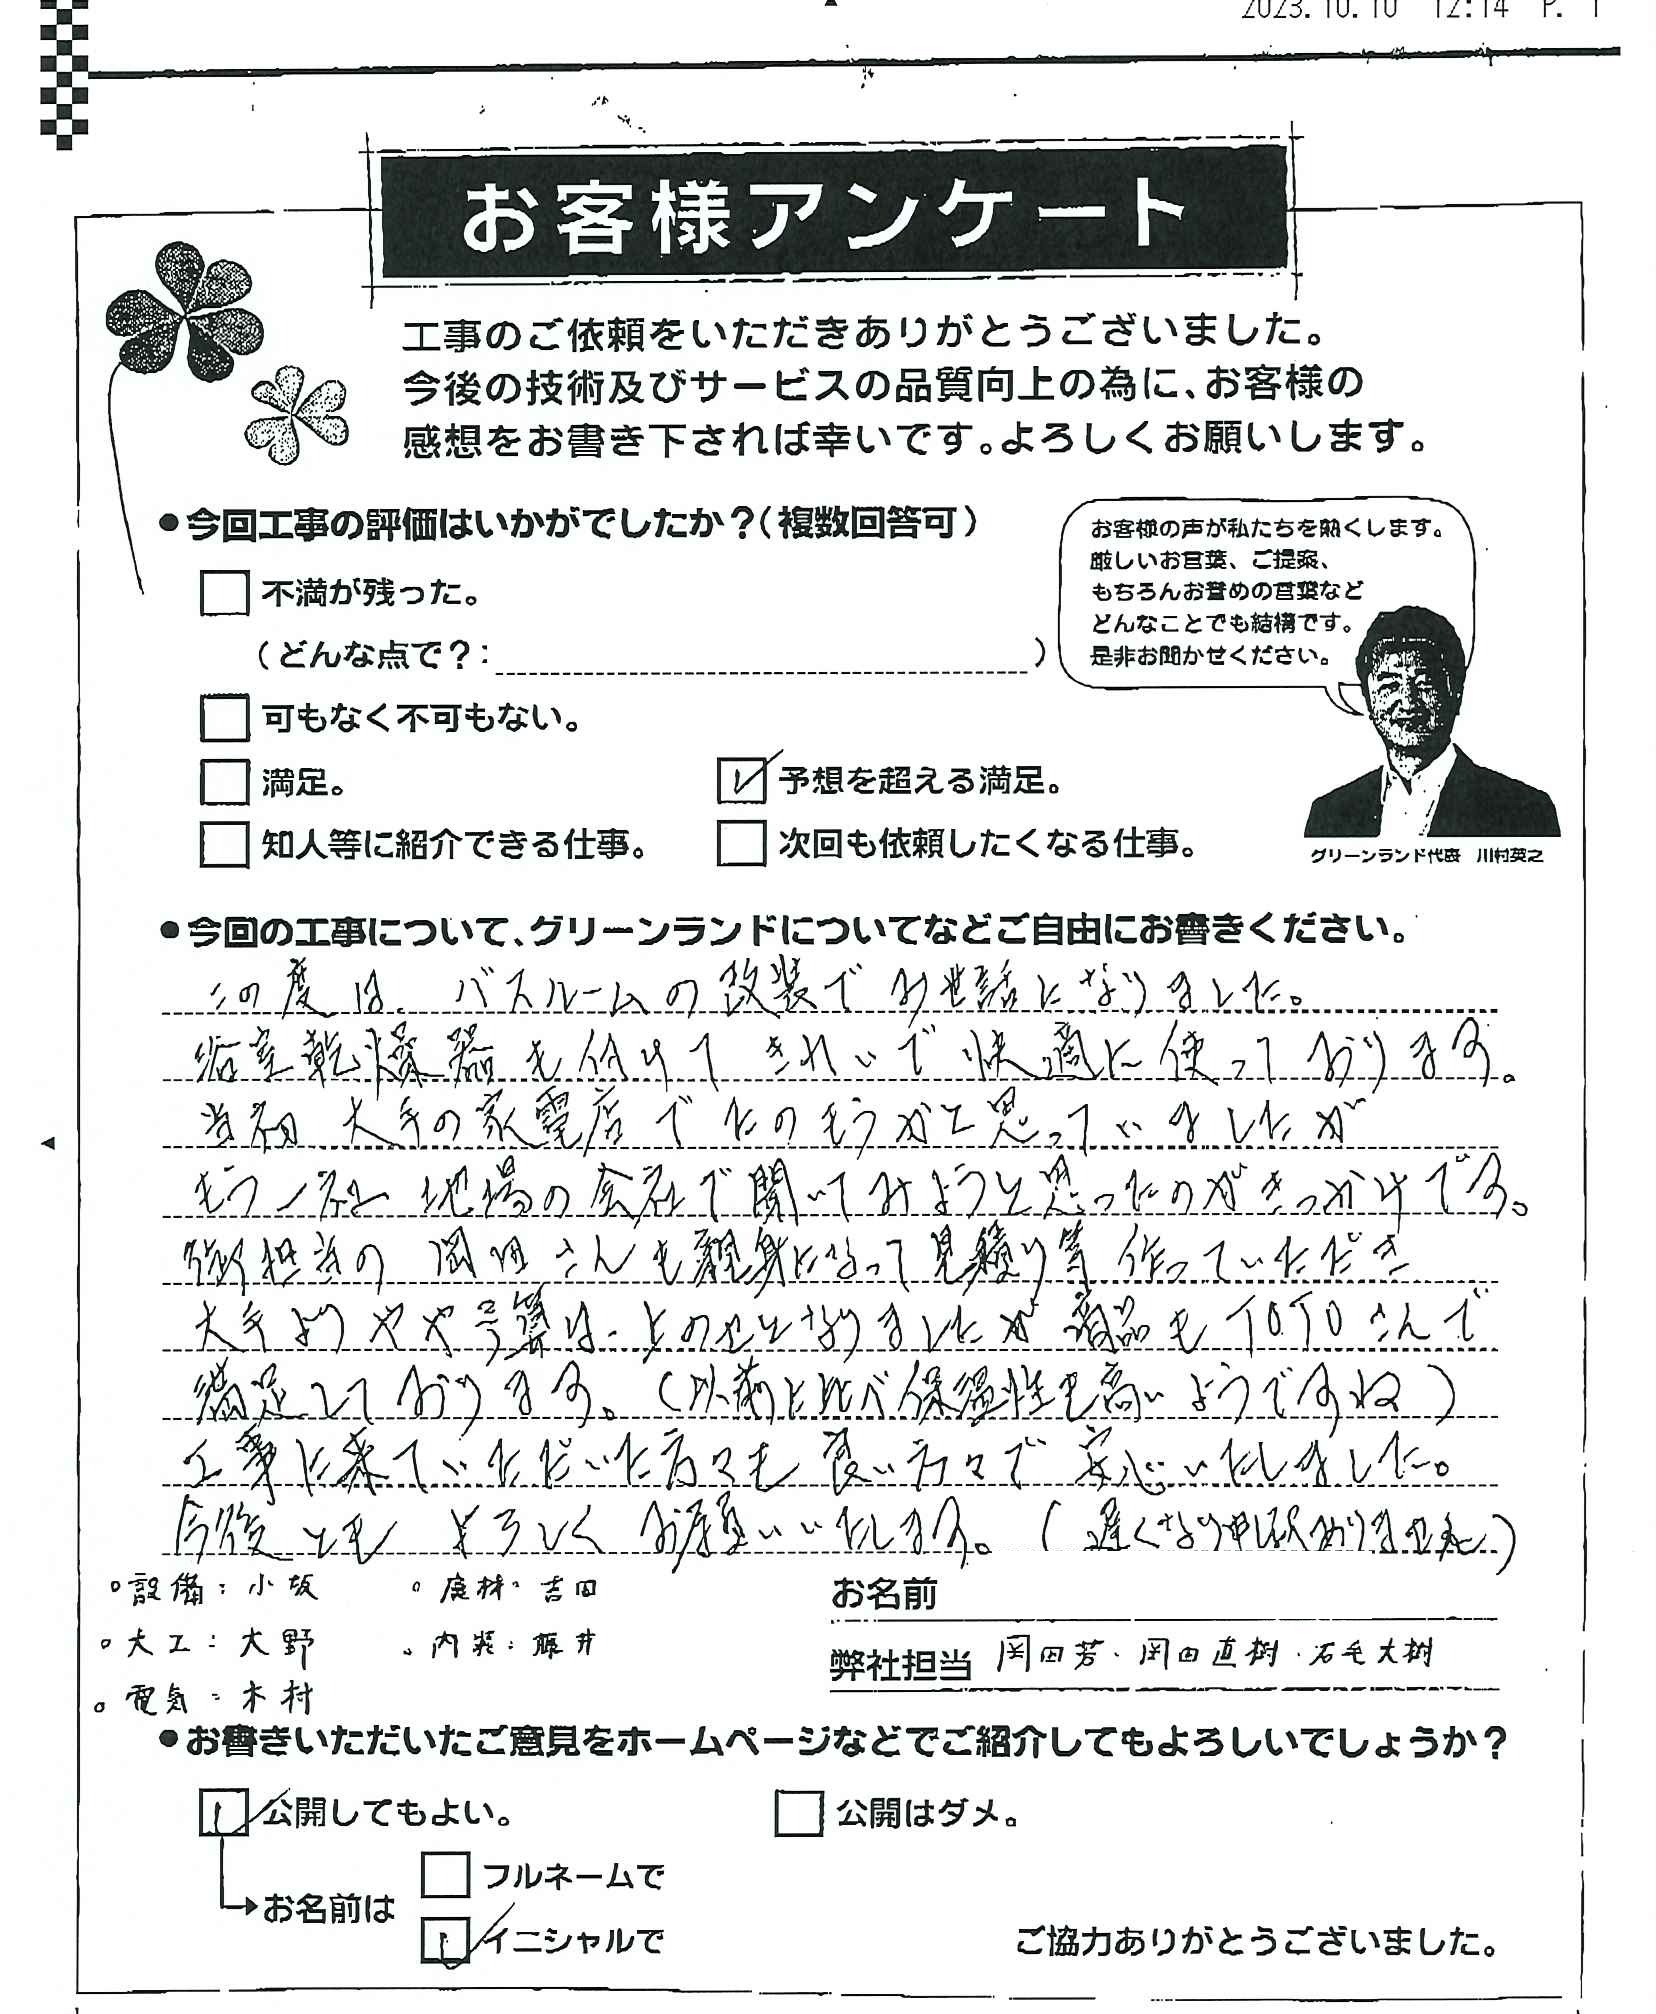 2023.10.10 12:14 P. 1
お客様アンケート
工事のご依頼をいただきありがとうございました。
今後の技術及びサービスの品質向上の為に、お客様の
感想をお書き下されば幸いです。よろしくお願いします。
●今回工事の評価はいかがでしたか?(複数回答可)
お客様の声が私たちを熱くします。
厳しいお言葉、ご提案、
もちろんお誉めの言葉など
どんなことでも結構です。
是非お聞かせください。
不満が残った。
(どんな点で?: )
可もなく不可もない。
満足。
予想を超える満足。
知人等に紹介できる仕事。
次回も依頼したくなる仕事。
グリーンランド代表 川村英之
●今回の工事について、グリーンランドについてなどご自由にお書きください。
この度は、バスルームの改装でお世話になりました。
浴室乾燥器も付けてきれいで快適に使っております。
当初 大手の家電店でたのもうかと思っていましたが
もう一社 地場の会社で聞いてみようと思ったのがきっかけです。
御担当の 岡田さんも親身になって見積り等 作っていただき
大手よりやや予算は上のせとなりましたが 商品もTOTOさんで
満足しております。(以前に比べ保温性も高いようですね)
工事に来ていただいた方々も 良い方々で 安心いたしました。
今後とも よろしく お願いいたします。(遅くなり申し訳ありません)
。設備:小坂 。床材:吉田
。大工:大野 。内装:藤井
。電気:木村
お名前
弊社担当 岡田芳・岡田直樹・石毛大樹
●お書きいただいたご意見をホームページなどでご紹介してもよろしいでしょうか?
公開してもよい。
公開はダメ。
お名前は
フルネームで
イニシャルで
ご協力ありがとうございました。